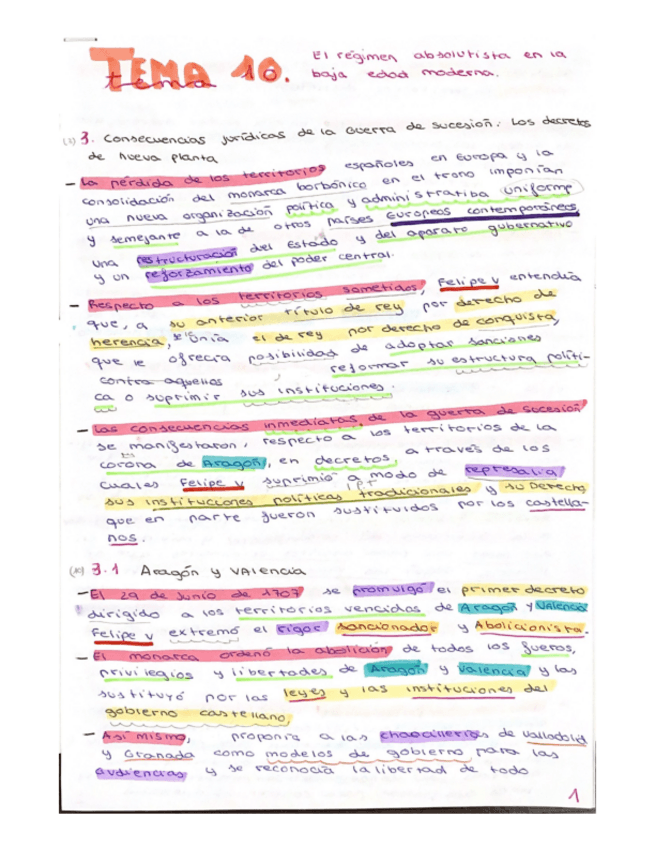 TEMA 10.
tema
El régimen absolutista en la
baja edad moderna.
3. Consecuencias jurídicas de la Guerra de sucesión. Los decretos
de Nueva planta
- La pérdida de los territorios españoles en Europa y la
consolidación del monarca borbónico en el trono imponían
una nueva organización política y administratiba uniforme
y semejante a la de otros países Europeos contemporáneos,
una restructuración del Estado y del aparato gubernativo
y un reforzamiento del poder central.
- Respecto a los territorios sometidos, Felipe V entendía
que, a su anterior título de rey por derecho de
herencia, se unía el de rey por derecho de conquista,
que le ofrecía posibilidad de adoptar sanciones
contra aquellos reformar su estructura políti-
ca o suprimir sus instituciones.
- Las consecuencias inmediatas de la guerra de sucesión
se manifestaron, respecto a los territorios de la
corona de Aragón, en decretos, a través de los
cuales Felipe V suprimió a modo de represalia
sus instituciones políticas tradicionales y su Derecho
que en parte fueron sustituidos por los castella-
nos.
3.1 Aragón y Valencia
- El 29 de Junio de 1707 se promulgó el primer decreto
dirigido a los territorios vencidos de Aragón y Valencia
Felipe V extremó el rigor sancionador y Abolicionista.
- El monarca ordenó la abolición de todos los fueros,
privilegios y libertades de Aragón y Valencia y las
sustituyó por las leyes y las instituciones del
gobierno castellano,
- Así mismo, proponía a las chancillerías de Valladolid
y Granada como modelos de gobierno para las
audiencias y se reconocía la libertad de todo
1